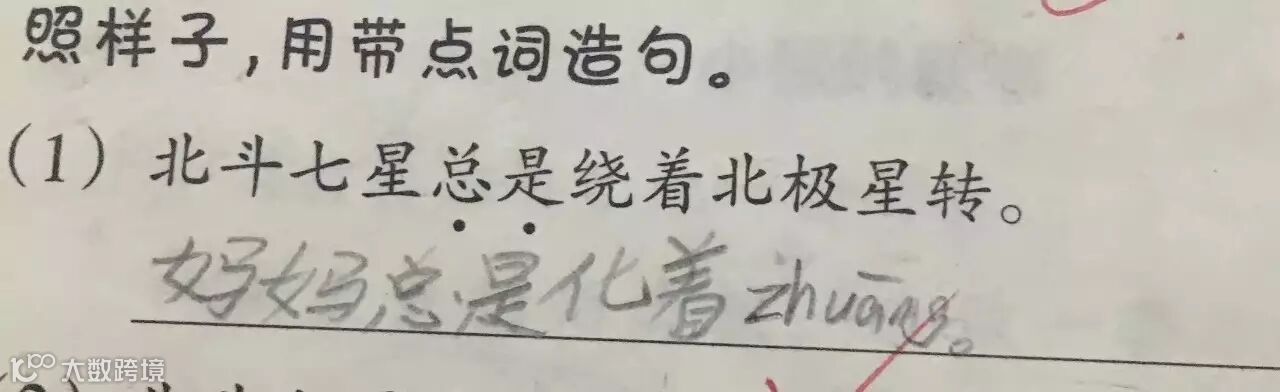 照样子,用带点词造句。
(1) 北斗七星总是绕着北极星转。
妈妈总是化着zhuāng。
大数跨境